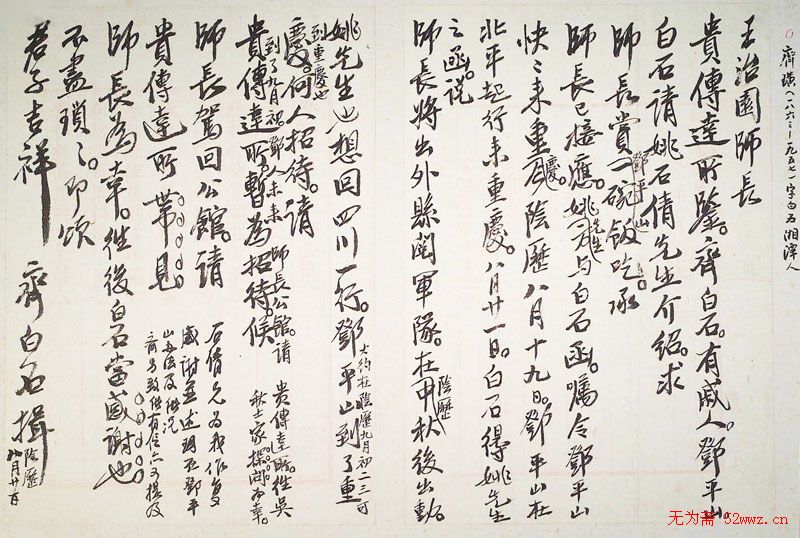 齊璜(一八六三—一九五七)字白石湘潭人
王治園師長
貴傳達所鑒。齊白石。有戚人。鄧平山。
白石請姚石倩先生介紹。求
師長賞一碗飯吃。承
鄧平山
師長已接應。姚先生与白石函。囑令鄧平山
快〻来重慶。陰歷八月十九日。鄧平山在
北平起行来重慶。八月廿一日。白石得姚先生
之函。説
師長將出外縣閱軍隊。在陰歷秋後出動。
姚先生也想回四川一行。鄧平山到了重
大約在陰歷九月初一二三寸
到重慶也
慶。何人招待。請
到了九月 視鄧人未来 師長公館。請 貴傳達所。往吳
貴傳達所。暫為招待。候
秋士家探問为幸。
師長駕回公館。請
貴傳達所帶見。
師長為幸。從後白石當感謝也。
不盡瑣〻。即頌
君子吉祥 齊白石揖
陰歷
八月廿一日
石倩兄為我作复
感謝並述明在鄧平
山办法及此况
无为斋 52wwz.cn